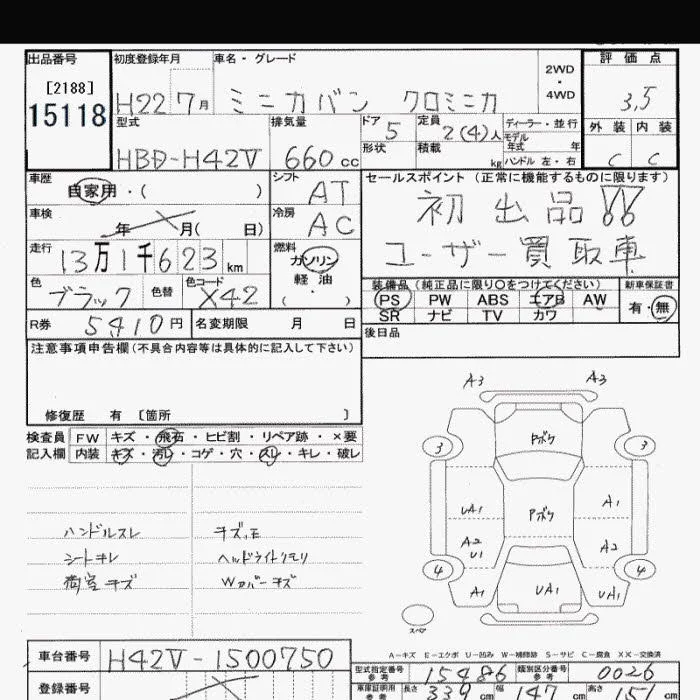 出品番号 初度登録年月 車名・グレード 2WD・4WD 評価点
[2188]
15118 H22 7月 ミニカバン クロミニカ 3.5
型式 排気量 ドア 定員 ディーラー・並行 外装 内装
HBD-H42V 660cc 5 2(4)人 モデル年式 年
形状 積載 kg ハンドル 左・右 C C
車歴 シフト セールスポイント (正常に機能するものに限ります)
自家用・( ) AT 初出品!!
車検 冷房
年 月( 日) AC ユーザー買取車
走行 燃料
13万1千623km ガソリン
軽油
( ・ )
色 色替 色コード 装備品(純正品に限り○をつけてください) 新車保証書
ブラック X42 PS PW ABS エアB AW 有・無
SR ナビ TV カワ
R券 5410円 名変期限 月 日 後日品
注意事項申告欄(不具合内容等は具体的に記入して下さい)
修復歴 有 〔箇所 〕
検査員 FW キズ・飛石・ヒビ割・リペア跡・×要
記入欄 内装 キズ・汚レ・コゲ・穴・スレ・キレ・破レ
A3 A3
Pボク
3 3
ハンドルスレ
シートキレ ヘッドライトクモリ
荷室キズ Wカバーキズ
UA1 Pボク A1
A2 U1 A2
4 4
A1 UA1 UA1
スペア
A-キズ E-エクボ U-凹み W-補修跡 S-サビ C-腐食 XX-交換済
車台番号 H42V-1500750
登録番号
型式指定番号 参考 15486 類別区分番号 参考 0026
車庫証明用 参考 長さ 339cm 幅 147cm 高さ 157cm